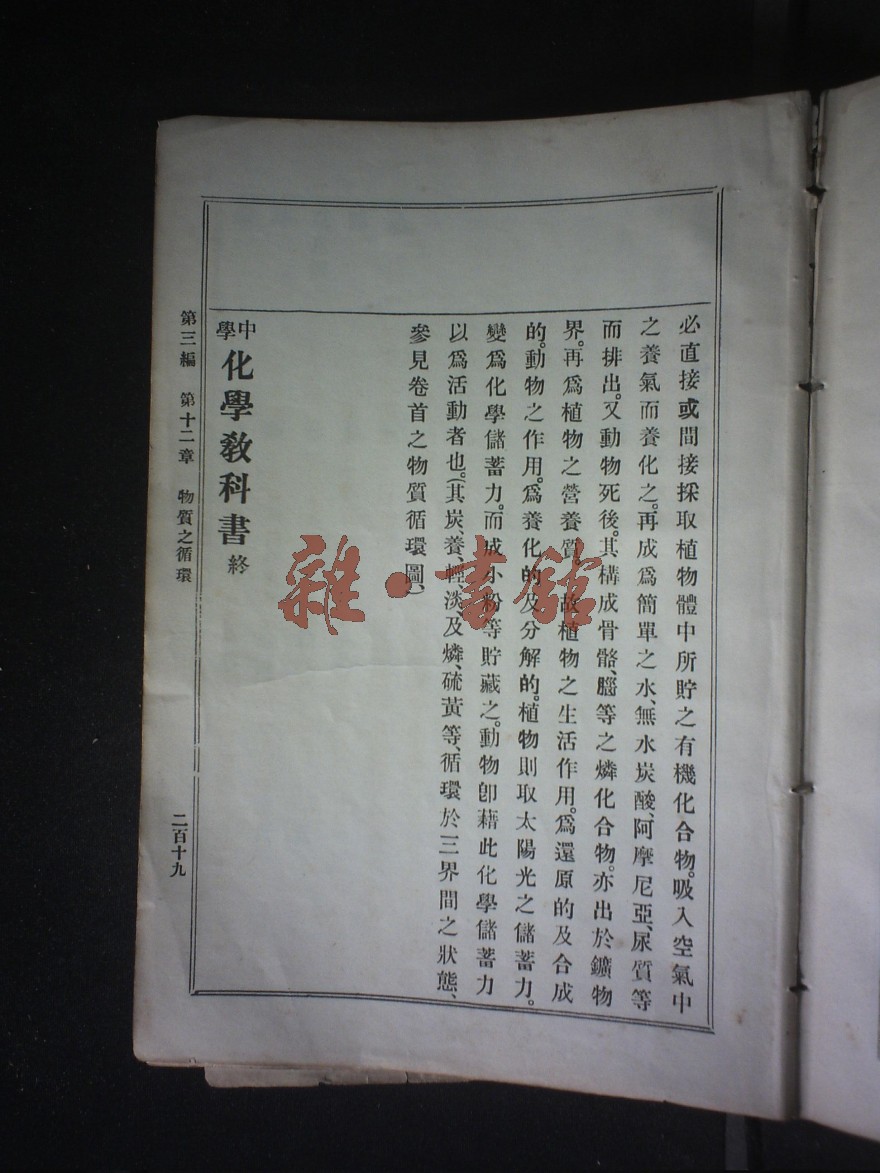 必直接或間接採取植物體中所貯之有機化合物。吸入空氣中
之養氣而養化之。再成爲簡單之水、無水炭酸、阿摩尼亞、尿質等
而排出。又動物死後。其構成骨骼、腦等之燐化合物。亦出於鑛物
界。再爲植物之營養質。故植物之生活作用。爲還原的及合成
的。動物之作用。爲養化的及分解的。植物則取太陽光之儲蓄力。
變爲化學儲蓄力。而成小粉等貯藏之。動物卽藉此化學儲蓄力
以爲活動者也。(其炭、養、輕、淡及燐、硫黃等、循環於三界間之狀態、
參見卷首之物質循環圖、)
中學化學教科書 終
第三編 第十二章 物質之循環 二百十九
雜·書館